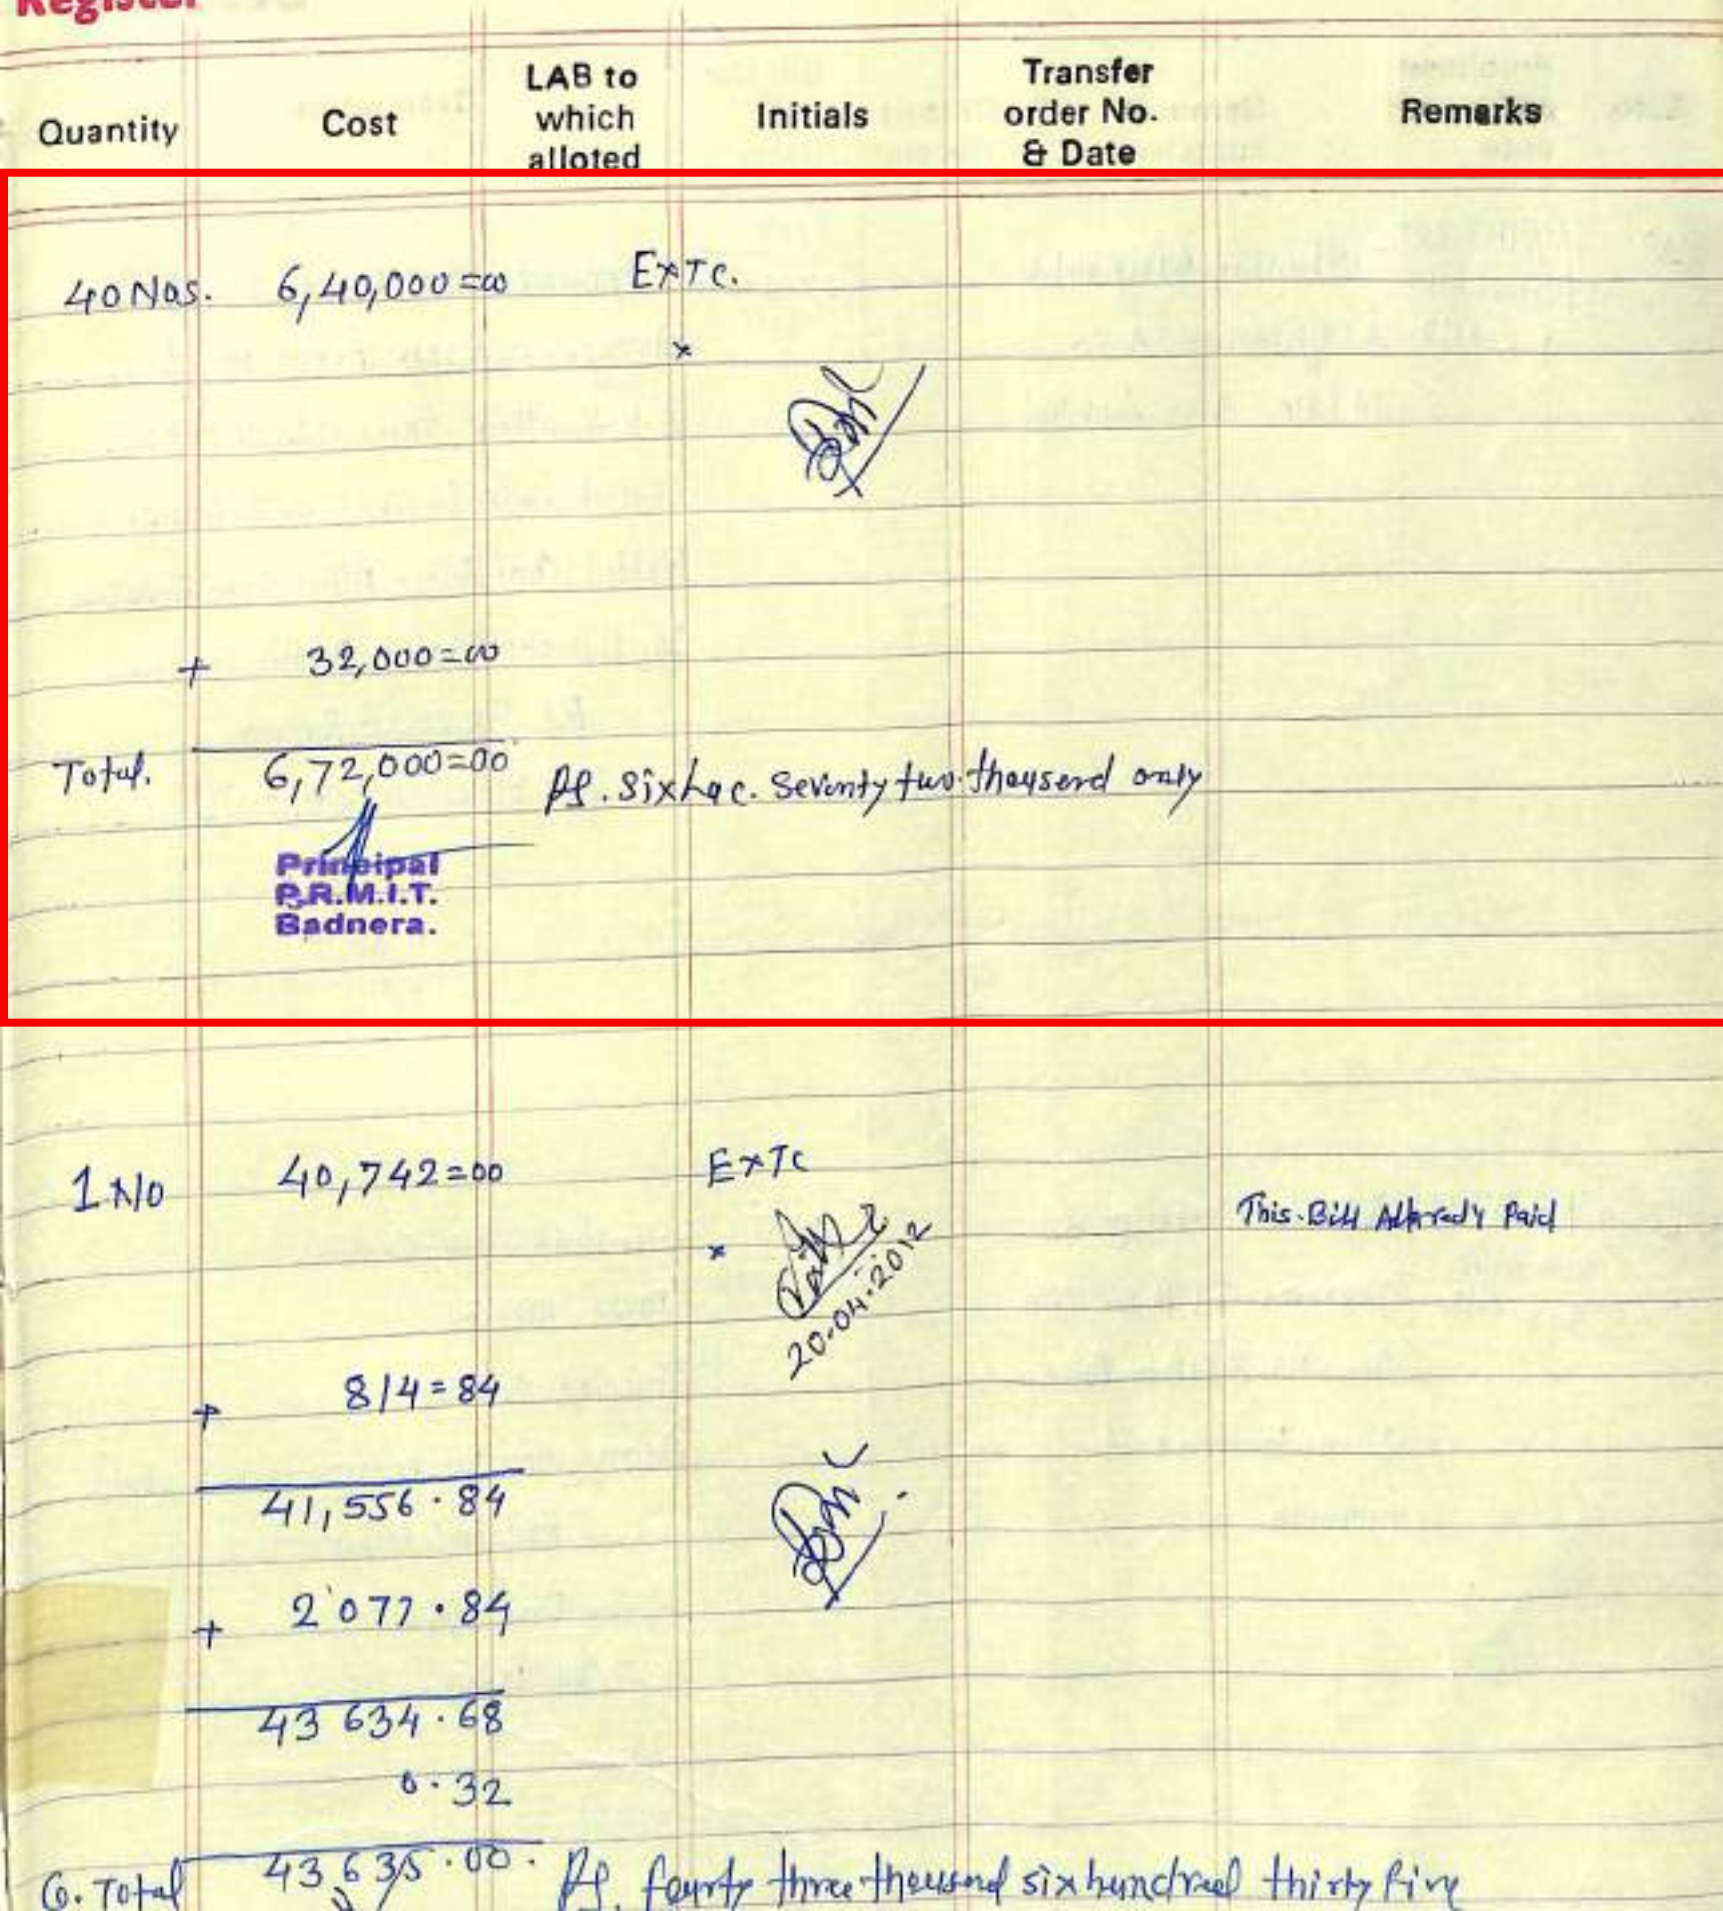 Register
Quantity Cost LAB to which alloted Initials Transfer order No. & Date Remarks
40 Nos. 6,40,000=00 ExTc.
x
+ 32,000=00
Total. 6,72,000=00 Rs. Six Lac. Seventy two thousend only
Principal
P.R.M.I.T.
Badnera.
1 No 40,742=00 ExTc
This Bill Allready Paid
x
20.04.2012
+ 814=84
41,556.84
+ 2077.84
43634.68
0.32
G. Total 43635.00. Rs. fourty three thousend six hundred thirty five